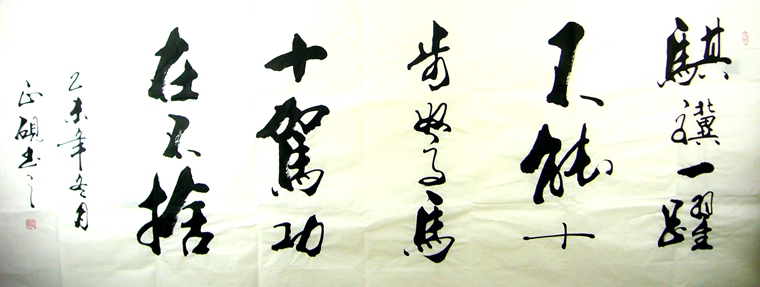 騏驥一躍
不能十
步驽馬
十駕功
在不捨
乙未年冬月
正硯书之